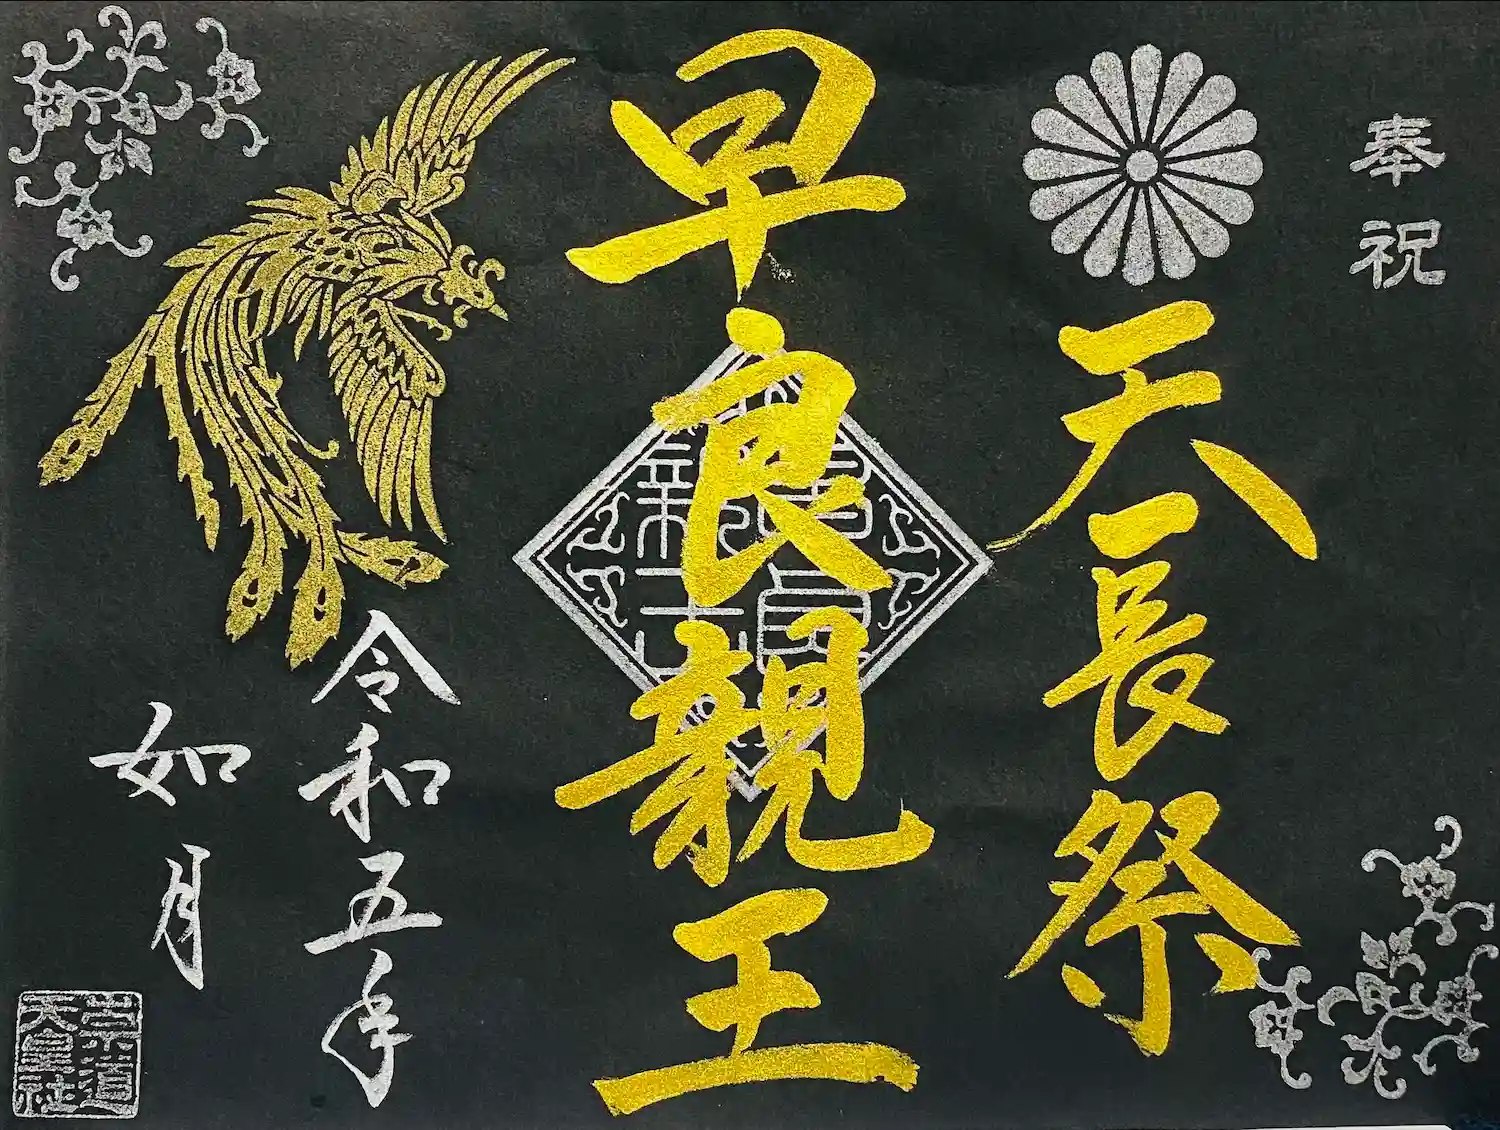 奉祝
天長祭
早良親王
令和五年
如月
崇道天皇社